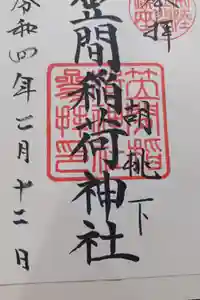 奉拝
胡桃下
笠間稲荷神社
令和四年二月十二日